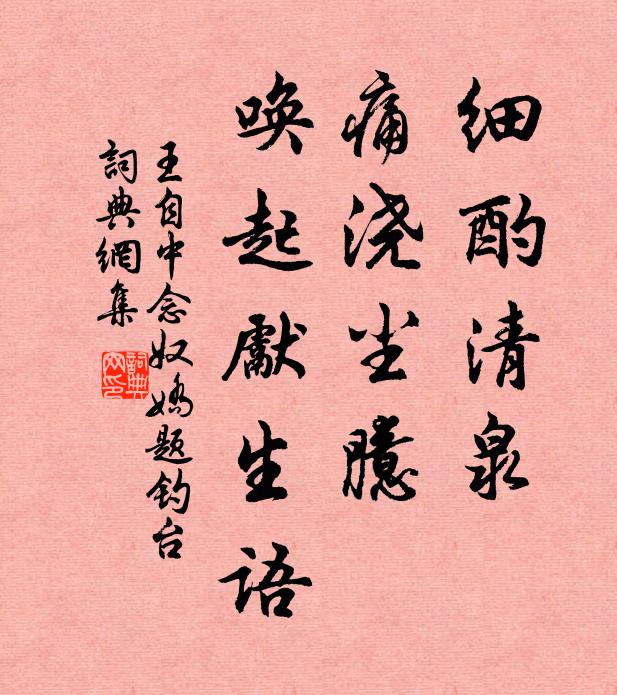 细酌清泉
痛浇尘臆
唤起献生语
王自中念奴娇题钓台
詞典網集
詞典网印